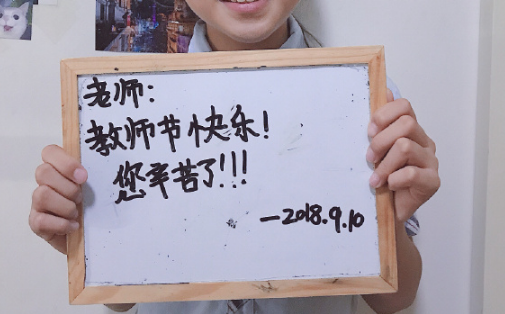 老师:
教师节快乐!
您辛苦了!!!
—2018.9.10